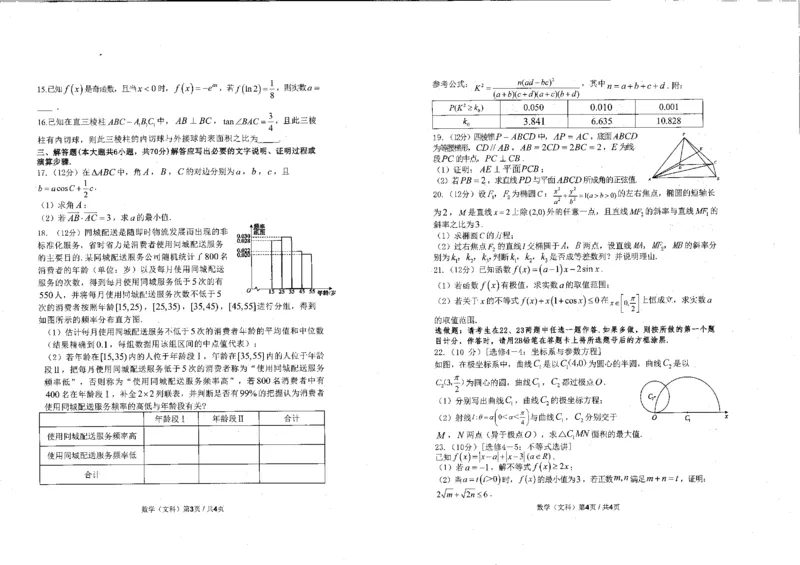 15.已知f(x)是奇函数，且当x<0时，f(x)=-e^{ax}，若f(ln2)=1/8，则实数a=
____．
16.已知在直三棱柱ABC-A₁B₁C₁中，AB⊥BC，tan∠BAC=3/4，且此三棱
柱有内切球，则此三棱柱的内切球与外接球的表面积之比为____．
三、解答题(本大题共6小题，共70分)解答应写出必要的文字说明、证明过程或
演算步骤．
17.（12分）在△ABC中，角A，B，C的对边分别为a，b，c，且
b=acosC+1/2c．
（1）求角A；
（2）若AB·AC=3，求a的最小值．
18.（12分）同城配送是随即时物流发展而出现的非
标准化服务，省时省力是消费者使用同城配送服务
的主要目的．某同城配送服务公司随机统计了800名
消费者的年龄（单位：岁）以及每月使用同城配送
服务的次数，得到每月使用同城服务低于5次的有
550人，并将每月使用同城配送服务次数不低于5
次的消费者按照年龄[15,25)，[25,35)，[35,45)，[45,55]进行分组，得到
如图所示的频率分布直方图．
频率
组距
0.030
0.028
0.022
0.020
O 15 25 35 45 55 年龄/岁
（1）估计每月使用同城配送服务不低于5次的消费者年龄的平均值和中位数
（结果精确到0.1，每组数据用该组区间的中点值代表）；
（2）若年龄在[15,35)内的人位于年龄段Ⅰ，年龄在[35,55]内的人位于年龄
段Ⅱ，把每月使用同城配送服务低于5次的消费者称为“使用同城配送服务
频率低”，否则称为“使用同城配送服务频率高”，若800名消费者中有
400名在年龄段Ⅰ，补全2×2列联表，并判断是否有99%的把握认为消费者
使用同城配送服务频率的高低与年龄段有关？
年龄段Ⅰ 年龄段Ⅱ 合计
使用同城配送服务频率高
使用同城配送服务频率低
合计
数学（文科）第3页 / 共4页
参考公式：K²=n(ad-bc)²/(a+b)(c+d)(a+c)(b+d)，其中n=a+b+c+d．附：
P(K²≥k₀) 0.050 0.010 0.001
k₀ 3.841 6.635 10.828
19.（12分）四棱锥P-ABCD中，AP=AC，底面ABCD
为等腰梯形，CD//AB，AB=2CD=2BC=2，E为线
段PC的中点，PC⊥CB．
（1）证明：AE⊥平面PCB；
（2）若PB=2，求直线PD与平面ABCD所成角的正弦值．
20.（12分）设F₁，F₂为椭圆C：x²/a²+y²/b²=1(a>b>0)的左右焦点，椭圆的短轴长
为2，M是直线x=2上除(2,0)外的任意一点，且直线MF₂的斜率与直线MF₁的
斜率之比为3．
（1）求椭圆C的方程；
（2）过右焦点F₂的直线l交椭圆于A，B两点，设直线MA，MF₂，MB的斜率分
别为k₁，k₂，k₃，判断k₁，k₂，k₃是否成等差数列？并说明理由．
21.（12分）已知函数f(x)=(a-1)x-2sinx．
（1）若函数f(x)有极值，求实数a的取值范围；
（2）若关于x的不等式f(x)+x(1+cosx)≤0在x∈[0,π/2]上恒成立，求实数a
的取值范围．
选做题：请考生在22、23两题中任选一题作答．如果多做，则按所做的第一个题
目计分，作答时，请用2B铅笔在答题卡上将所选题号后的方框涂黑．
22.（10 分）[选修4-4：坐标系与参数方程]
如图，在极坐标系中，曲线C₁是以C₁(4,0)为圆心的半圆，曲线C₂是以
C₂(3,π/2)为圆心的圆，曲线C₁，C₂都过极点O．
（1）分别写出曲线C₁，曲线C₂的极坐标方程；
（2）射线l:θ=α(0<α<π/4)与曲线C₁，C₂分别交于
C₂
O C₁ x
M，N两点（异于极点O），求△C₁MN面积的最大值．
23.（10分）[选修4-5：不等式选讲]
已知f(x)=|x-a|+|x-3|(a∈R)．
（1）若a=-1，解不等式f(x)≥2x；
（2）当a=t(t>0)时，f(x)的最小值为3，若正数m,n满足m+n=t，证明：
2√m+√2n≤6．
数学（文科）第4页 / 共4页